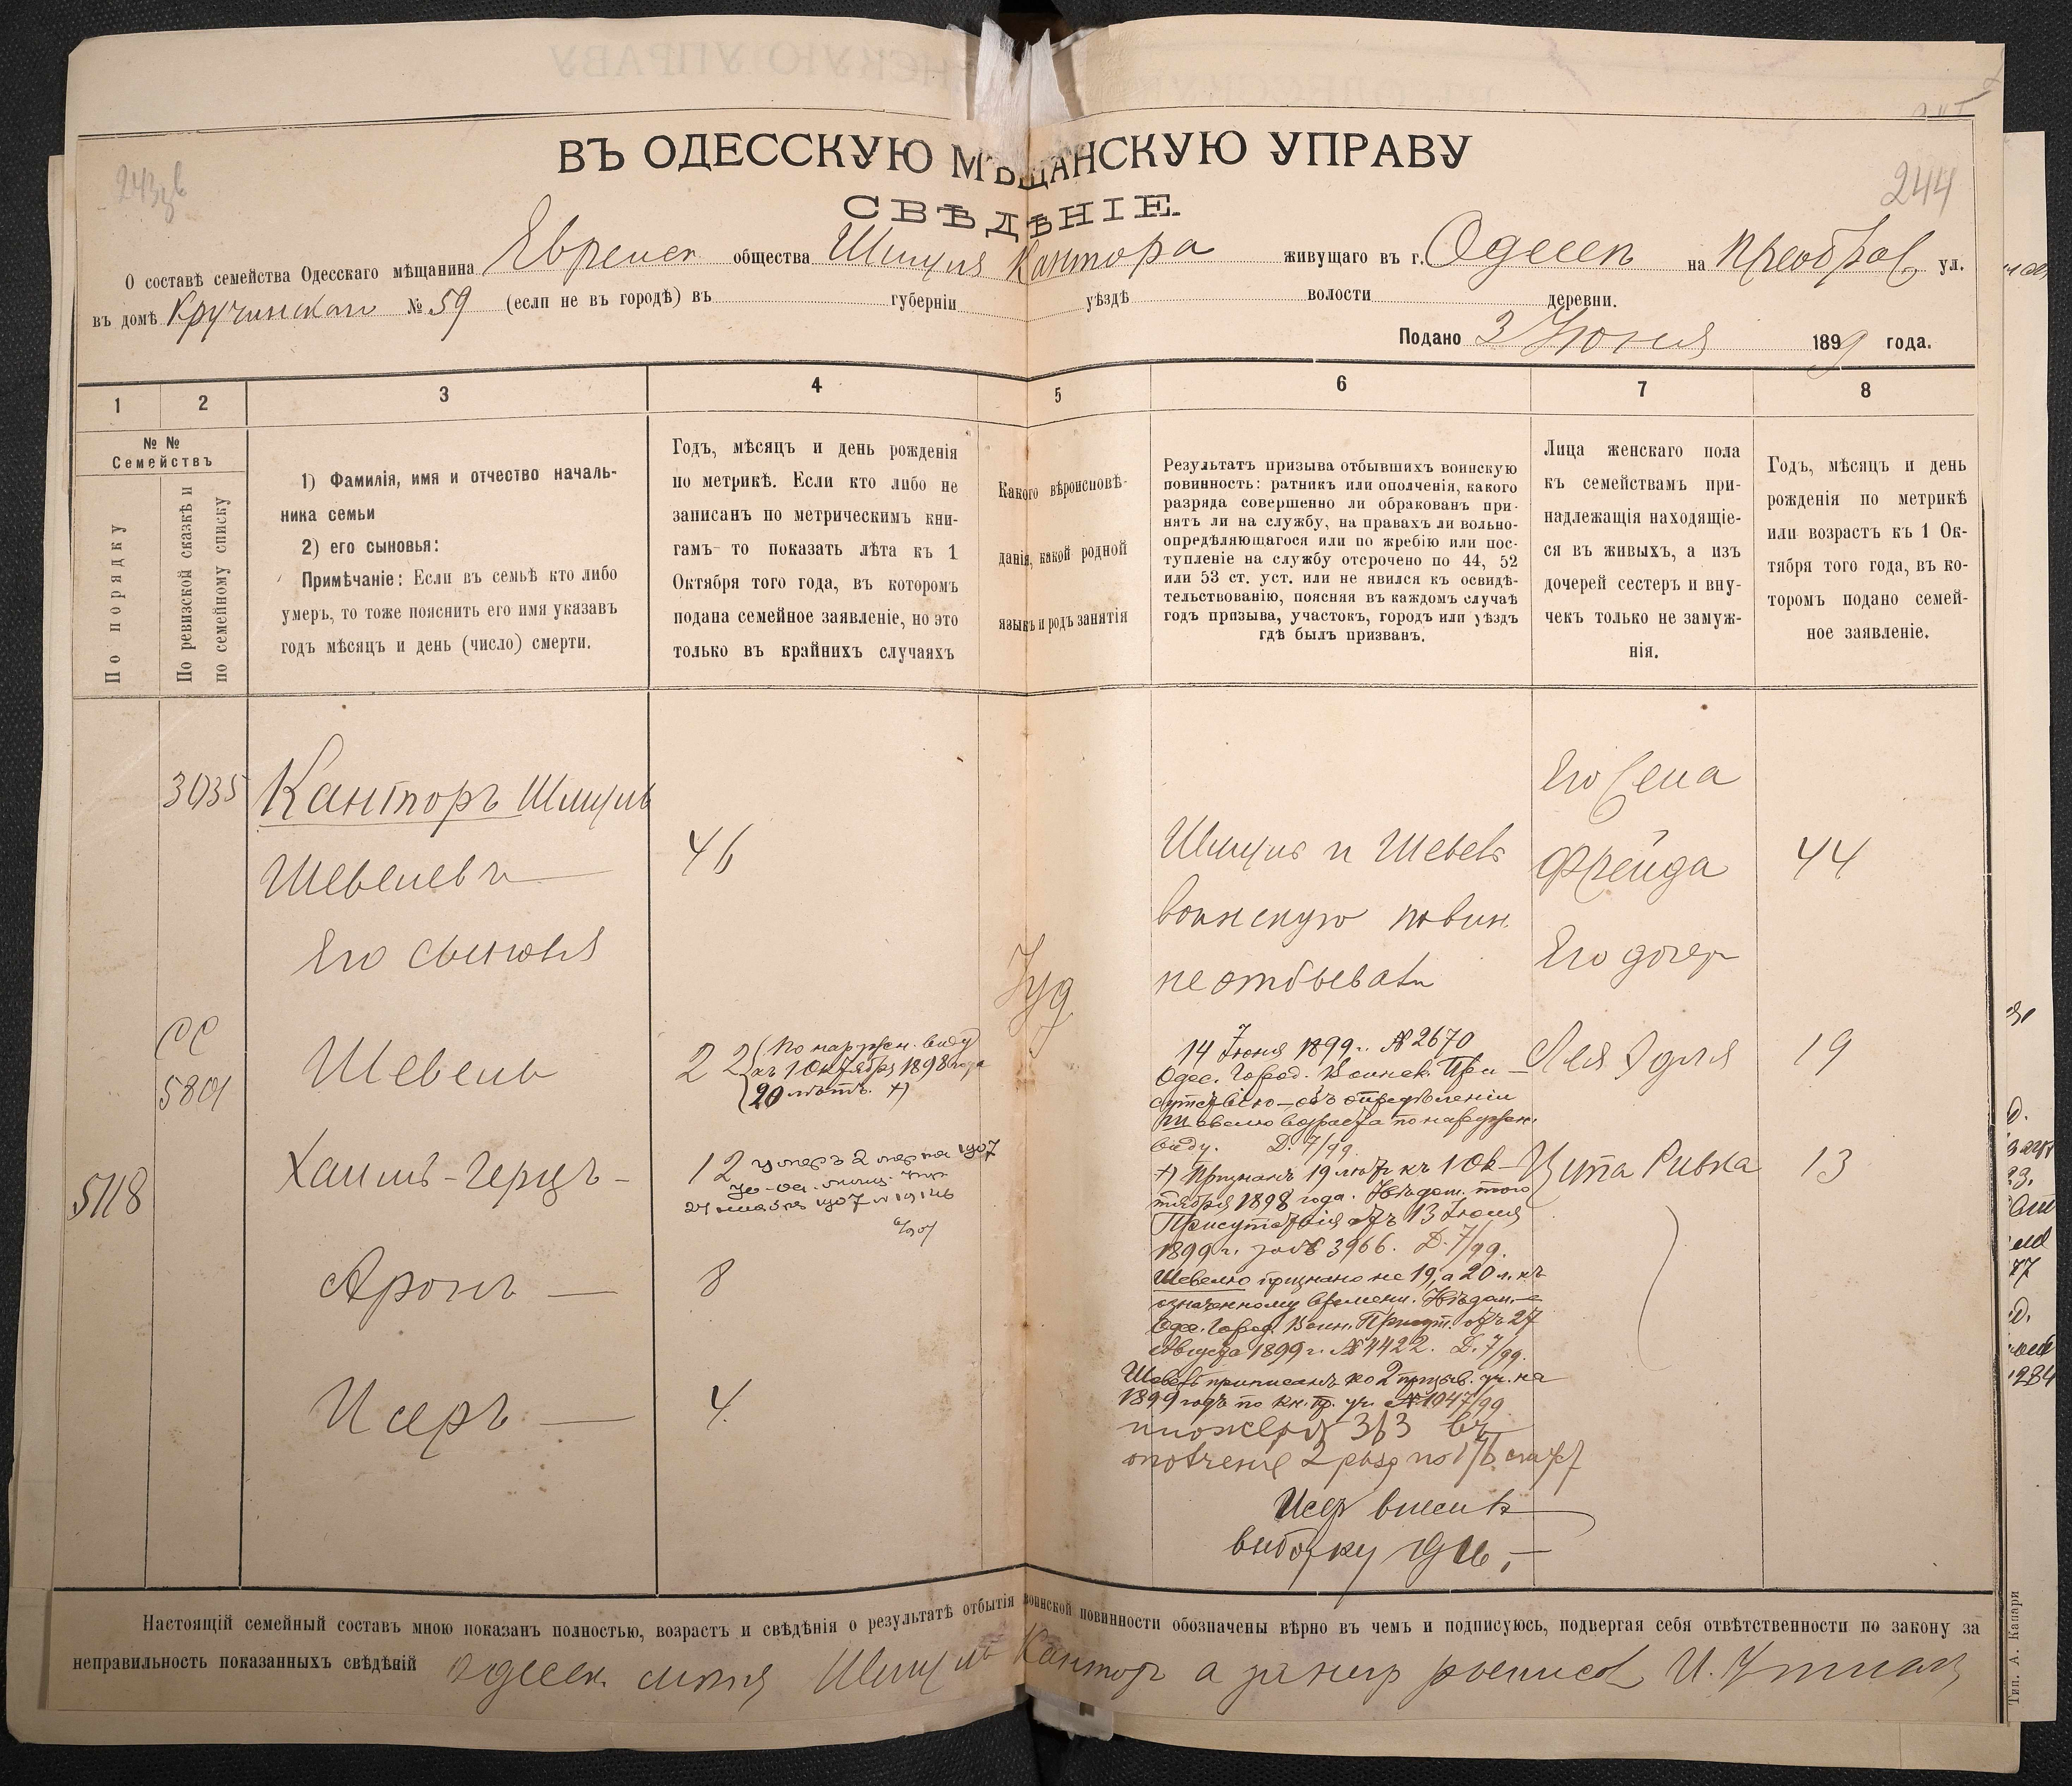 244
ВЪ ОДЕССКУЮ МѢЩАНСКУЮ УПРАВУ
СВѢДѢНІЕ.
О составѣ семейства Одесскаго мѣщанина Евреиск общества Шмуля Кантора живущаго въ г. Одессѣ на Преображ ул.
въ домѣ № 59 (если не въ городѣ) въ губерніи уѣздѣ волости деревни.
Подано 3 Іюня 1899 года.
1 2 3 4 5 6 7 8
№ №
Семействъ
По порядку
По ревизской сказкѣ и
по семейному списку
1) Фамилія, имя и отчество началь-
ника семьи
2) его сыновья:
Примѣчаніе: Если въ семьѣ кто либо
умеръ, то тоже пояснить его имя указавъ
годъ мѣсяцъ и день (число) смерти.
Годъ, мѣсяцъ и день рожденія
по метрикѣ. Если кто либо не
записанъ по метрическимъ кни-
гамъ то показать лѣта къ 1
Октября того года, въ которомъ
подана семейное заявленіе, но это
только въ крайнихъ случаяхъ
Какого вѣроисповѣ-
данія, какой родной
языкъ и родъ занятія
Результатъ призыва отбывшихъ воинскую
повинность: ратникъ или ополченія, какого
разряда совершенно ли обракованъ при-
нятъ ли на службу, на правахъ ли вольно-
опредѣляющагося или по жребію или пос-
тупленіе на службу отсрочено по 44, 52
или 53 ст. уст. или не явился къ освидѣ-
тельствованію, поясняя въ каждомъ случаѣ
годъ призыва, участокъ, городъ или уѣздъ
гдѣ былъ призванъ.
Лица женскаго пола
къ семействамъ при-
надлежащія находящіе-
ся въ живыхъ, а изъ
дочерей сестеръ и вну-
чекъ только не замуж-
нія.
Годъ, мѣсяцъ и день
рожденія по метрикѣ
или возрастъ къ 1 Ок-
тября того года, въ ко-
торомъ подано семей-
ное заявленіе.
Канторъ Шмуль
Шевелевъ
46
Его сыновья
5801
Шевель
22 (По наружн. виду
къ 1 Октября 1898 года
20 лѣтъ. +)
5118
Хаимъ-Герцъ
12 умеръ 2 1907
Аронъ
8
Исеръ
4.
Іуд
Шмуль и Шевель
воинскую повин.
не отбывали
14 Іюня 1899 г. № 2670
Одес. Город. Воинск. При-
сутствію объ опредѣленіи
Шевелю возраста по наружн.
виду. Д. 7/99.
+) Признанъ 19 лѣтъ къ 1 Ок-
тября 1898 года. Увѣдом. того
Присутствія отъ 13 Іюля
1899 г. за № 3966. Д. 7/99.
Шевелю признано не 19, а 20 л. къ
означенному времени. Увѣдом-е
Одес. Город. Воин. Присут. отъ 27
Августа 1899 г. № 4422. Д. 7/99.
Шевель приписанъ ко 2 призыв. уч. на
1899 годъ по кн. пр. уч. № 1047/99
ополчение 2 разр
Исер внесенъ
выборку
Его жена
Фрейда
44
Его дочери
Лея Адля
19
Цита Ривка
13
Настоящій семейный составъ мною показанъ полностью, возрастъ и свѣдѣнія о результатѣ отбытія воинской повинности обозначены вѣрно въ чемъ и подписуюсь, подвергая себя отвѣтственности по закону за
неправильность показанныхъ свѣдѣній Одесск. Шмуль Кантор а за
Тип. А. Канари